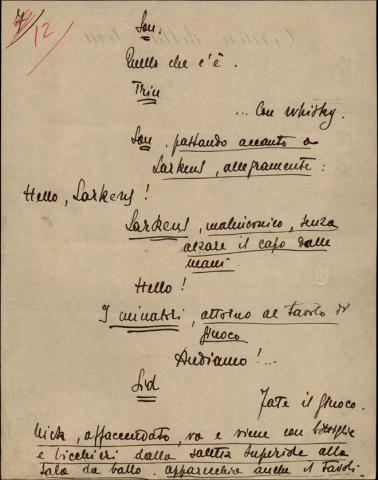 7
12
Son.
Quello che c'è.
Trin
... Con whisky.
Son. passando accanto a
Larkens, allegramente:
Hello, Larkens!
Larkens, malinconico, senza
alzare il capo dalle
mani
Hello!
I minatori, attorno al tavolo di
giuoco
Andiamo!...
Sid
Fate il giuoco.
Nick, affaccendato, va e viene con bottiglie
e bicchieri dalla saletta superiore alla
sala da ballo. apparecchia anche i tavoli.